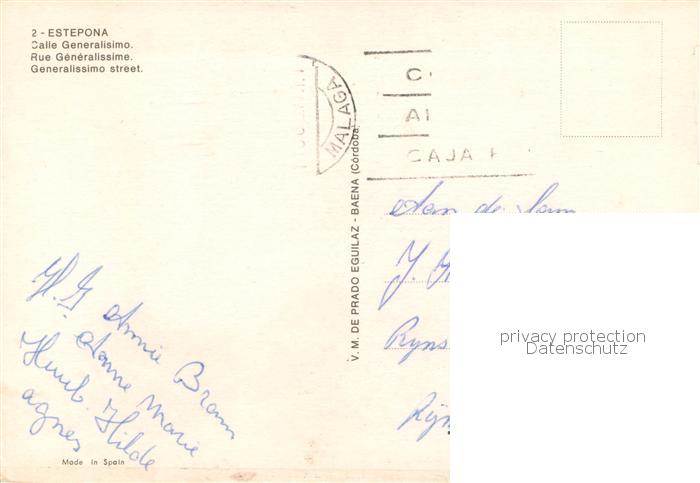 2 - ESTEPONA
Calle Generalísimo.
Rue Généralissime.
Generalissimo street.
MALAGA
CAJA
V. M. DE PRADO EGUILAZ - BAENA (Córdoba)
Aan de Fam
J.
Ryns
Rijn
H. G. Annie Bram
Anne Marie
Huub. Hilde
agnes
Made in Spain
privacy protection
Datenschutz